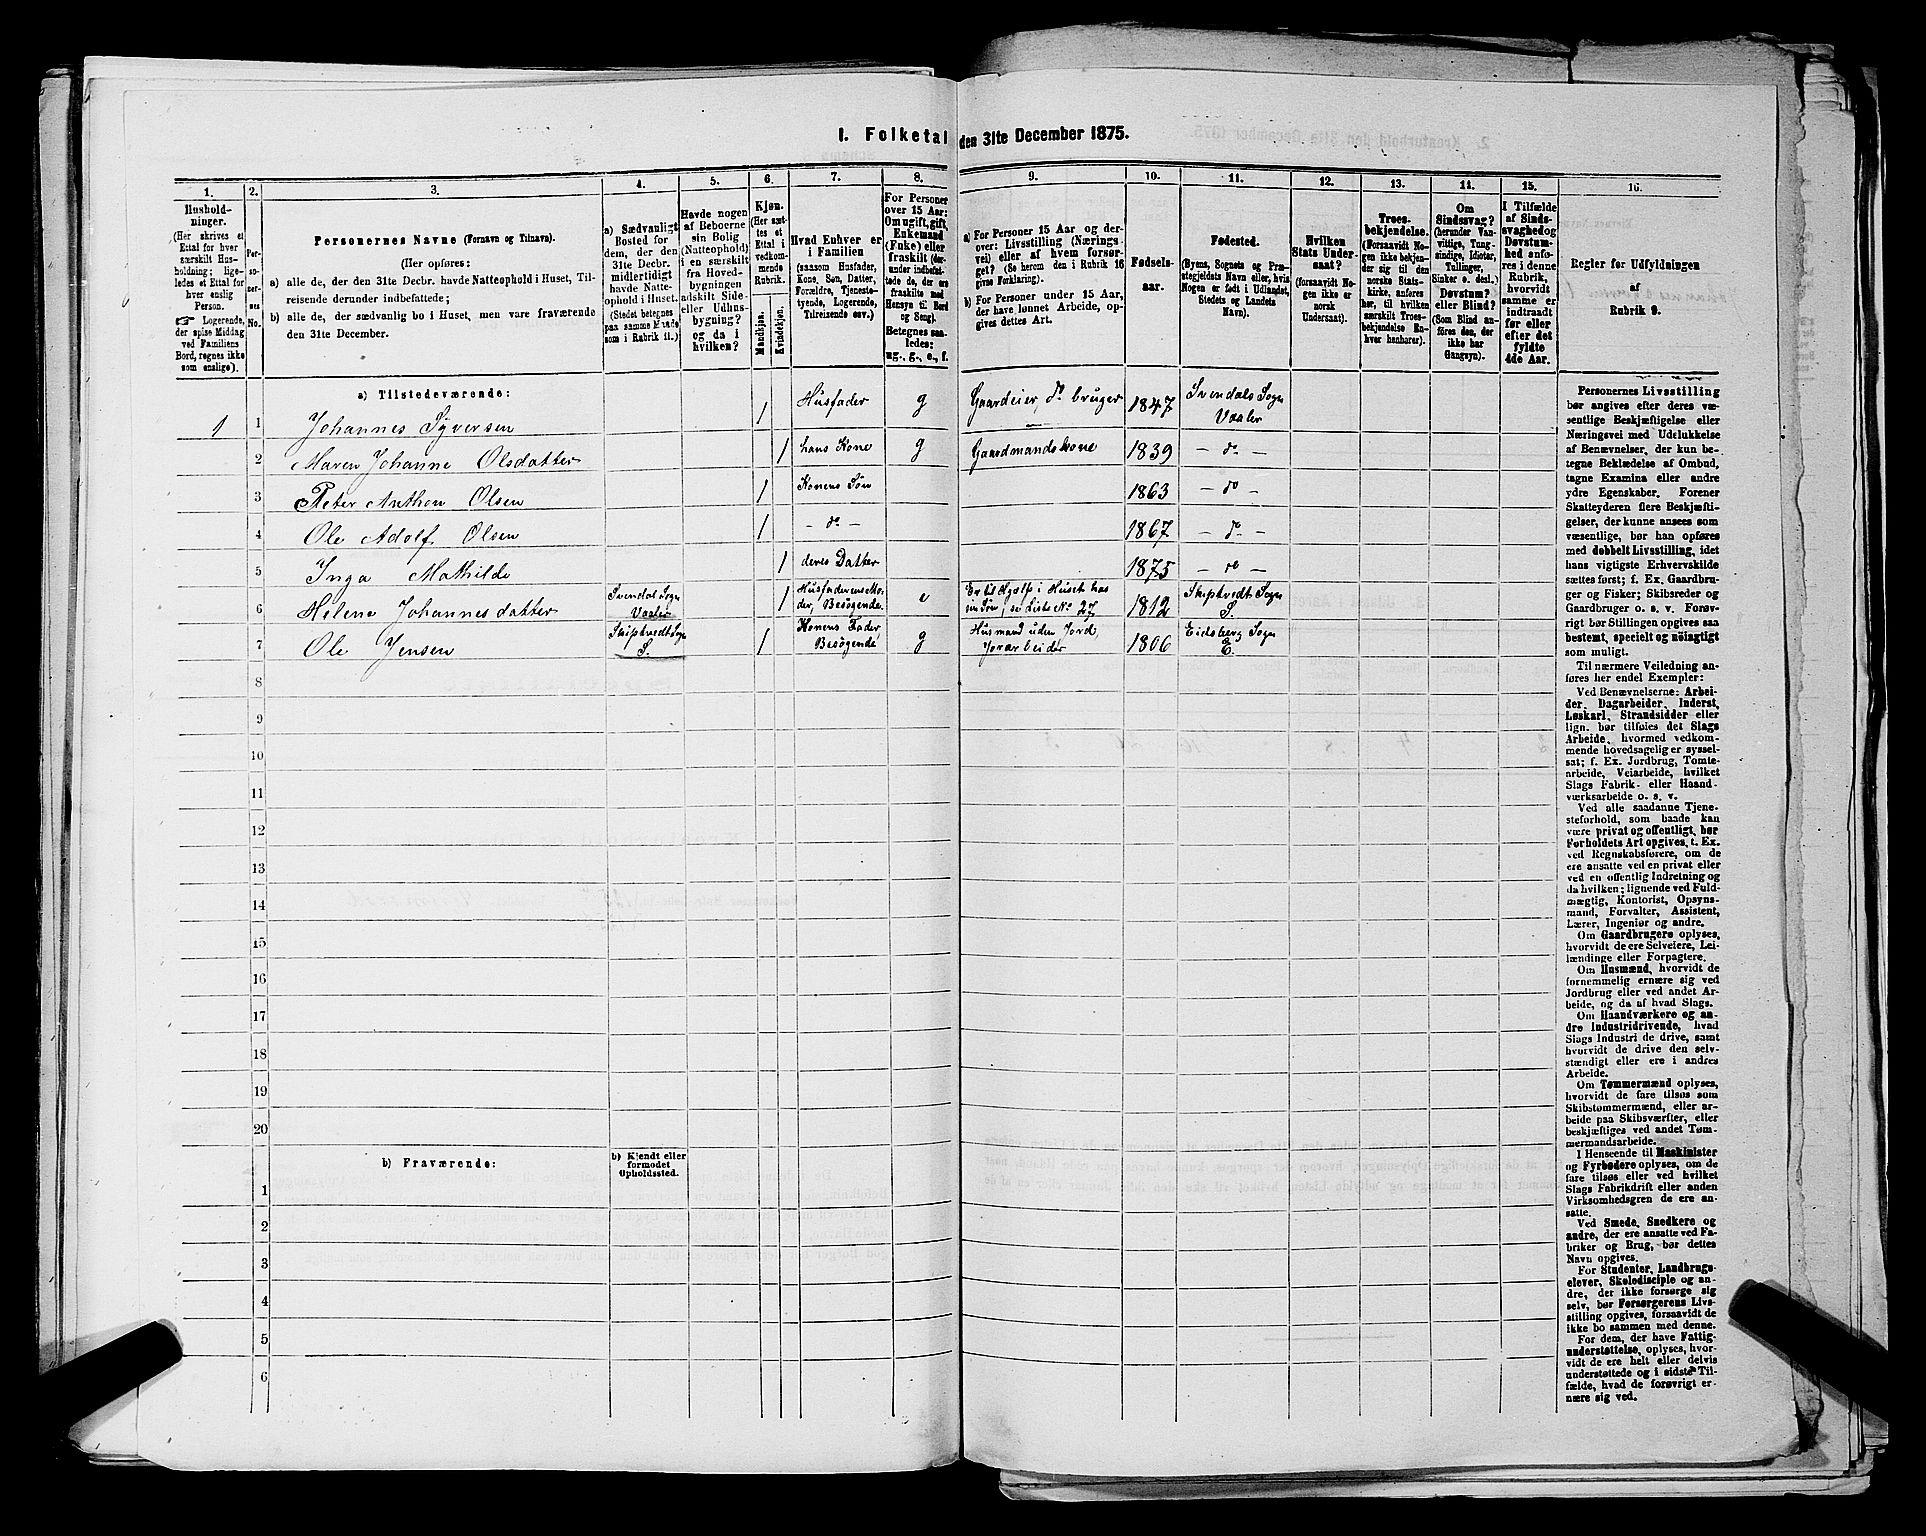 1. Folketal den 31te December 1875.
1. 2. 3. 4. 5. 6. 7. 8. 9. 10. 11. 12. 13. 14. 15. 16.
Hushold-
ninger.
(Her skrives et
Ettal for hver
særskilt Hus-
holdning; lige-
ledes et Ettal for
hver enslig
Person.
☞ Logerende,
der spise Middag
ved Familiens
Bord, regnes ikke
som enslige).
Per-
so-
ner-
nes
No.
Personernes Navne (Fornavn og Tilnavn).
(Her opføres:
a) alle de, der den 31te Decbr. havde Natteophold i Huset, Til-
reisende derunder indbefattede;
b) alle de, der sædvanlig bo i Huset, men vare fraværende
den 31te December.
a) Sædvanligt
Bosted for
dem, der den
31te Decbr.
midlertidigt
havde Natte-
ophold i Huset.
(Stedet betegnes
paa samme Maade
som i Rubrik 11.)
Havde nogen
af Beboerne
sin Bolig
(Natteophold)
i en særskilt
fra Hoved-
bygningen
adskilt Side-
eller Udhus-
bygning?
og da i
hvilken?
Kjøn.
(Her sæt-
tes et
Ettal i
vedkom-
mende
Rubrik.)
Mandkjøn.
Kvindekjøn.
Hvad Enhver er
i Familien
(saasom Husfader,
Kone, Søn, Datter,
Forældre, Tjeneste-
tyende, Logerende,
Tilreisende osv.)
For Personer
over 15 Aar:
Om ugift, gift,
Enkemand
(Enke) eller
fraskilt (der-
under indbefat-
tede de, der ere
fraskilte med
Hensyn til Bord
og Seng).
Betegnes saa-
ledes:
ug., g., e., f.
a) For Personer 15 Aar og der-
over: Livsstilling (Nærings-
vei) eller af hvem forsør-
get? (Se herom den i Rubrik 16
givne Forklaring).
b) For Personer under 15 Aar,
der have lønnet Arbeide, op-
gives dettes Art.
Fødsels-
aar.
Fødested.
(Byens, Sognets og Præ-
stegjeldets Navn eller, hvis
Nogen er født i Udlandet,
Stedets og Landets
Navn).
Hvilken
Stats Under-
saat?
(forsaavidt No-
gen ikke er
norsk
Undersaat).
Troes-
bekjendelse.
(Forsaavidt No-
gen ikke bekjen-
der sig til den
norske Stats-
kirke, anføres
her, til hvilken
særskilt Troes-
bekjendelse En-
hver henhører).
Om
Sindssvag?
(herunder Van-
vittige, Tung-
sindige, Idioter,
Tullinger,
Sinker o. desl.)
Døvstum?
eller Blind?
(Som Blind an-
føres den, der
ikke har
Gangsyn).
I Tilfælde
af Sinds-
svaghed og
Døvstum-
hed anfø-
res i denne
Rubrik,
hvorvidt
samme er
indtraadt
før eller
efter det
fyldte
4de Aar.
Regler for Udfyldningen
af
Rubrik 9.
a) Tilstedeværende:
1 1 Johannes Syversen 1 Husfader g Gaardeier, do bruger 1847 Svendals Sogn Vaaler
2 Maren Johanne Olsdatter 1 hans Kone g Gaardmandskone 1839 - do -
3 Peter Anthon Olsen 1 Konens Søn 1863 - do -
4 Ole Adolf Olsen 1 - do - 1867 - do -
5 Inga Mathilde 1 deres Datter 1875 - do -
6 Helene Johannesdatter Svendal Sogn Vaaler 1 Husfaderens Mo-
der, Besøgende. e Er til Hjælp i Huset hos
sin Søn, se Liste No 27 1812 Skiptvedt Sogn S.
7 Ole Jensen Skiptvedt Sogn S. 1 Konens Fader, Besøgende g Husmand uden Jord, Jorarbeider 1806 Eidsberg Sogn E.
8
9
10
11
12
13
14
15
16
17
18
19
20
b) Fraværende:
b) Kjendt eller
formodet
Opholdssted.
1
2
3
4
5
6
Personernes Livsstilling
bør angives efter deres væ-
sentlige Beskjæftigelse eller
Næringsvei med Udelukkelse
af Benævnelser, der kun be-
tegne Beklædelse af Ombud,
tagne Examina eller andre
ydre Egenskaber. Forener
Skatteyderen flere Beskjæfti-
gelser, der kunne ansees som
væsentlige, bør han opføres
med dobbelt Livsstilling, idet
hans vigtigste Erhvervskilde
sættes først; f. Ex. Gaardbru-
ger og Fisker; Skibsreder og
Gaardbruger o. s. v. Forøv-
rigt bør Stillingen opgives saa
bestemt, specielt og nøiagtigt
som muligt.
Til nærmere Veiledning an-
føres her endel Exempler:
Ved Benævnelserne: Arbei-
der, Dagarbeider, Inderst,
Løskarl, Strandsidder eller
lign. bør tilføies det Slags
Arbeide, hvormed vedkom-
mende hovedsagelig er syssel-
sat; f. Ex. Jordbrug, Tomte-
arbeide, Veiarbeide, hvilket
Slags Fabrik- eller Haand-
værksarbeide o. s. v.
Ved alle saadanne Tjene-
steforhold, som baade kan
være privat og offentligt, bør
Forholdets Art opgives, t. Ex.
ved Regnskabsførere, om de
ere ansatte ved en privat eller
ved en offentlig Indretning og
da hvilken; lignende ved Fuld-
mægtig, Kontorist, Opsyns-
mand, Forvalter, Assistent,
Lærer, Ingeniør og andre.
Om Gaardbrugere oplyses,
hvorvidt de ere Selveiere, Lei-
lændinge eller Forpagtere.
Om Husmænd, hvorvidt de
fornemmelig ernære sig ved
Jordbrug eller ved andet Ar-
beide, og da af hvad Slags.
Om Haandværkere og an-
dre Industridrivende, hvad
Slags Industri de drive, samt
hvorvidt de drive den selv-
stændigt eller ere i andres
Arbeide.
Om Tømmermænd oplyses,
hvorvidt de fare tilsøs som
Skibstømmermænd, eller ar-
beide paa Skibsværfter, eller
beskjæftiges ved andet Tøm-
mermandsarbeide.
I Henseende til Maskinister
og Fyrbødere oplyses, om de
fare tilsøs eller ved hvilket
Slags Fabrikdrift eller anden
Virksomhedsgren de ere an-
satte.
Ved Smede, Snedkere og
andre, der ere ansatte ved Fa-
briker og Brug, bør dettes
Navn opgives.
For Studenter, Landbrugs-
elever, Skoledisciple og an-
dre, der ikke forsørge sig
selv, bør Forsørgerens Livs-
stilling opgives, forsaavidt de
ikke bo sammen med denne.
For dem, der have Fattig-
understøttelse, oplyses, hvor-
vidt de ere helt eller delvis
understøttede og i sidste Til-
fælde, hvad de forøvrigt er-
nære sig ved.